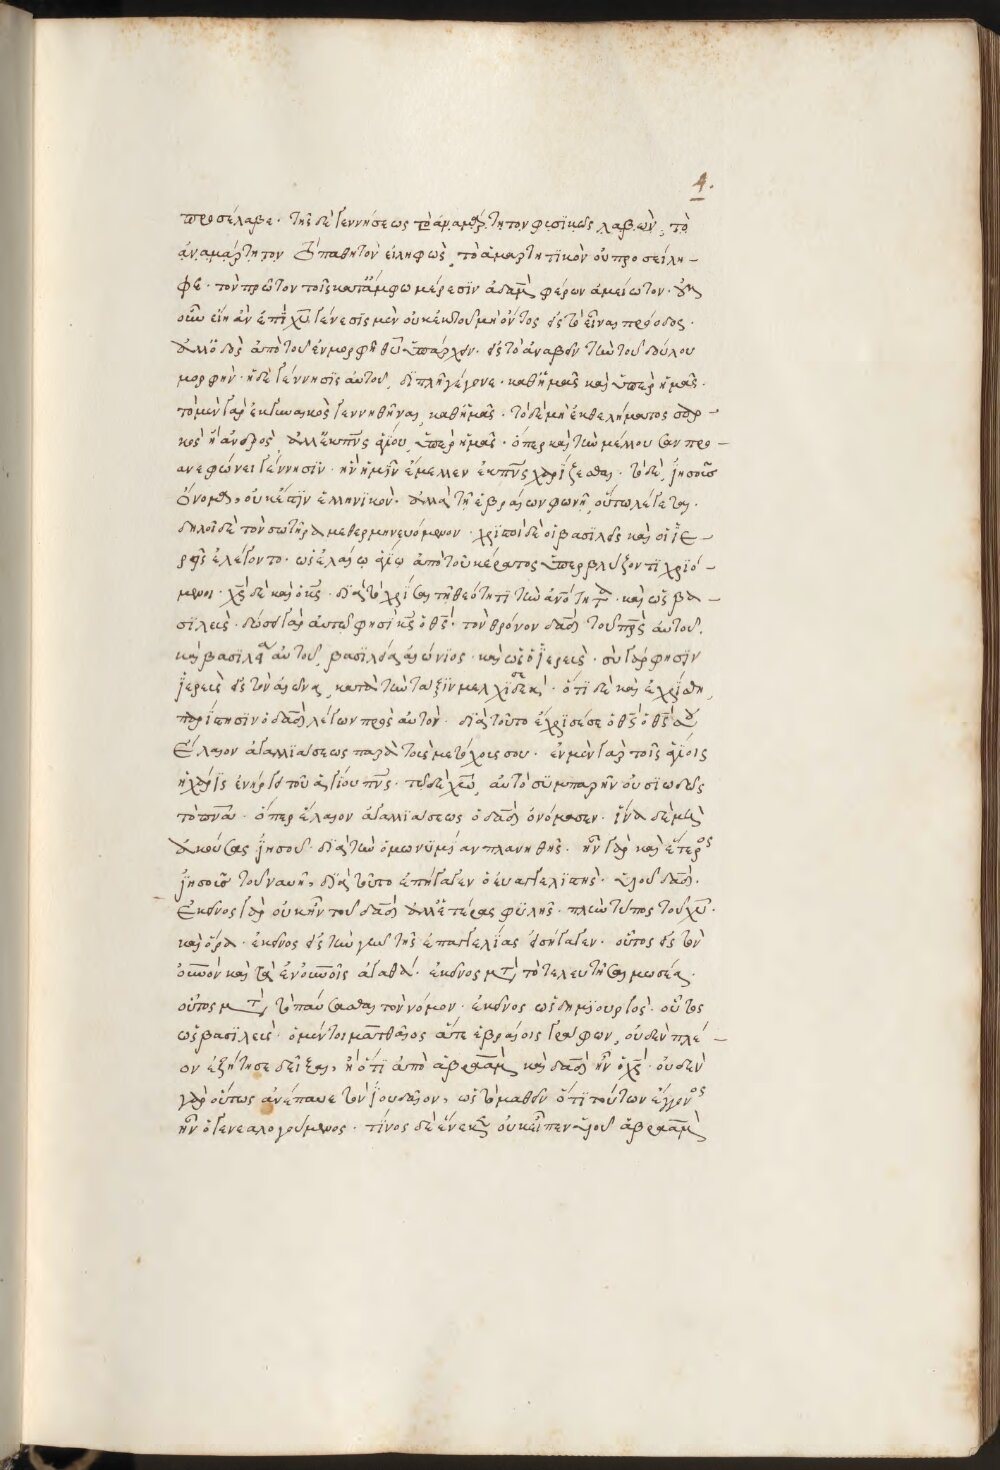 4.
προσέλαβε· τῆς δὲ γεννήσεως τὸ ἀναμάρτητον φυσικῶς λαβὼν, τὸ
ἀναμάρτητον καὶ παθητὸν εἰληφὼς, τὸ ἁμαρτητικὸν οὐ προσείλη-
φε· τὸν πρῶτον τοῖς κατάμφω μέρεσιν ἀδὰμ φέρων ἀμείωτον·
εἴη ἂν ἐπὶ χυ γένεσις μὲν οὐκ ἐκ τοῦ μὴ ὄντος εἰς τὸ εἶναι πρόοδος·
ἀλλ' ὁδὸς ἀπὸ τοῦ ἐν μορφῇ θυ ὑπάρχειν· εἰς τὸ ἀναβεῖν τὴν τοῦ δούλου
μορφήν· ἡ δὲ γέννησις αὐτοῦ, διπλῆ γέγονε· καθ' ἡμᾶς καὶ ὑπὲρ ἡμᾶς·
τὸ μὲν γὰρ ἐκ γυναικὸς γεννηθῆναι, καθ' ἡμᾶς· τὸ δὲ μὴ ἐκ θελήματος σαρ-
κὸς ἢ ἀνδρὸς ἀλλ' ἐκ πνς ἁγίου, ὑπὲρ ἡμᾶς· ὅπερ καὶ τὴν μέλλουσαν προ-
ανεφώνει γέννησιν· ἣν ἡμῖν ἔμελλεν ἐκ πνς χαρίζεσθαι· τὸ δὲ, ἰησοῦς
ὄνομα, οὐκ ἔστιν ἑλληνικόν· ἀλλὰ τῇ ἑβραίων φωνῇ, οὕτω λέγεται·
δηλοῖ δὲ τὸν σωτῆρα μεθερμηνευόμενον· χριστοὶ δὲ οἱ βασιλεῖς καὶ οἱ ἱε-
ρεῖς ἐλέγοντο· ὡς ἐλαίῳ ἁγίῳ ἀπὸ τοῦ κέρατος ὑπερβλύζοντι χριό-
μενοι· χς δὲ καὶ ὁ κς· διὰ τὸ χρίσαι τῇ θεότητι τὴν ἀνότητα· καὶ ὡς βα-
σιλεὺς· δώσει γὰρ αὐτῷ φησὶ κς ὁ θς· τὸν θρόνον δαδ τοῦ πρς αὐτοῦ·
καὶ βασιλεία αὐτοῦ, βασιλεία αἰώνιος· καὶ ὡς ὁ ἱερεὺς· σὺ γάρ φησιν
ἱερεὺς εἰς τὸν αἰῶνα, κατὰ τὴν τάξιν μελχισεδέκ· ὅτι δὲ καὶ ἐχρίσθη,
παρίστησιν ὁ δαδ λέγων πρὸς αὐτὸν· διὰ τοῦτο ἔχρισέ σε ὁ θς ὁ θς σου
ἔλαιον ἀγαλλιάσεως παρὰ τοὺς μετόχους σου· ἐν μὲν γὰρ τοῖς ἁγίοις
ἡ χάρις ἐνήργει τοῦ ἁγίου πνς· τῷ δὲ χω, αὐτὸ συμπαρῆν οὐσιωδῶς
τὸ πνα· ὅπερ ἔλαιον ἀγαλλιάσεως ὁ δαδ ὀνόμασεν· ἵνα δὲ μὴ
ἀκούσας ἰησοῦ· διὰ τὴν ὁμωνυμίαν πλανηθῇς· ἦν γὰρ καὶ ἕτερος
ἰησοῦς τοῦ ναυῆ, διὰ τοῦτο ἐπήγαγεν ὁ εὐαγγελιστὴς· υἱοῦ δαδ·
Ἐκεῖνος γὰρ οὐκ ἦν τοῦ δαδ ἀλλ' ἑτέρας φυλῆς· πλὴν τύπος τοῦ χυ·
καὶ ὅρα· ἐκεῖνος εἰς τὴν γῆν τῆς ἐπαγγελίας εἰσήγαγεν· οὗτος εἰς τὸν
οὐνὸν καὶ τὰ ἐν οὐνοῖς ἀγαθά· ἐκεῖνος μετὰ τὸ τελευτῆσαι μωσέα·
οὗτος μετὰ τὸ παύσασθαι τὸν νόμον· ἐκεῖνος ὡς δημιουργὸς· οὗτος
ὡς βασιλεὺς· ὁ μέντοι ματθαῖος ἅτε ἑβραίοις γράφων, οὐδὲν πλέ-
ον ἐζήτησε δεῖξαι, ἢ ὅτι ἀπὸ ἀβραὰμ καὶ δαδ ἦν ὁ χς· οὐδὲν
γὰρ οὕτως ἀνέπαυε τὸν ἰουδαῖον, ὡς τὸ μαθεῖν ὅτι τούτων ἔγγονος
ἦν ὁ γενεαλογούμενος· τίνος δὲ ἕνεκεν οὐκ εἶπεν υἱοῦ ἀβραὰμ